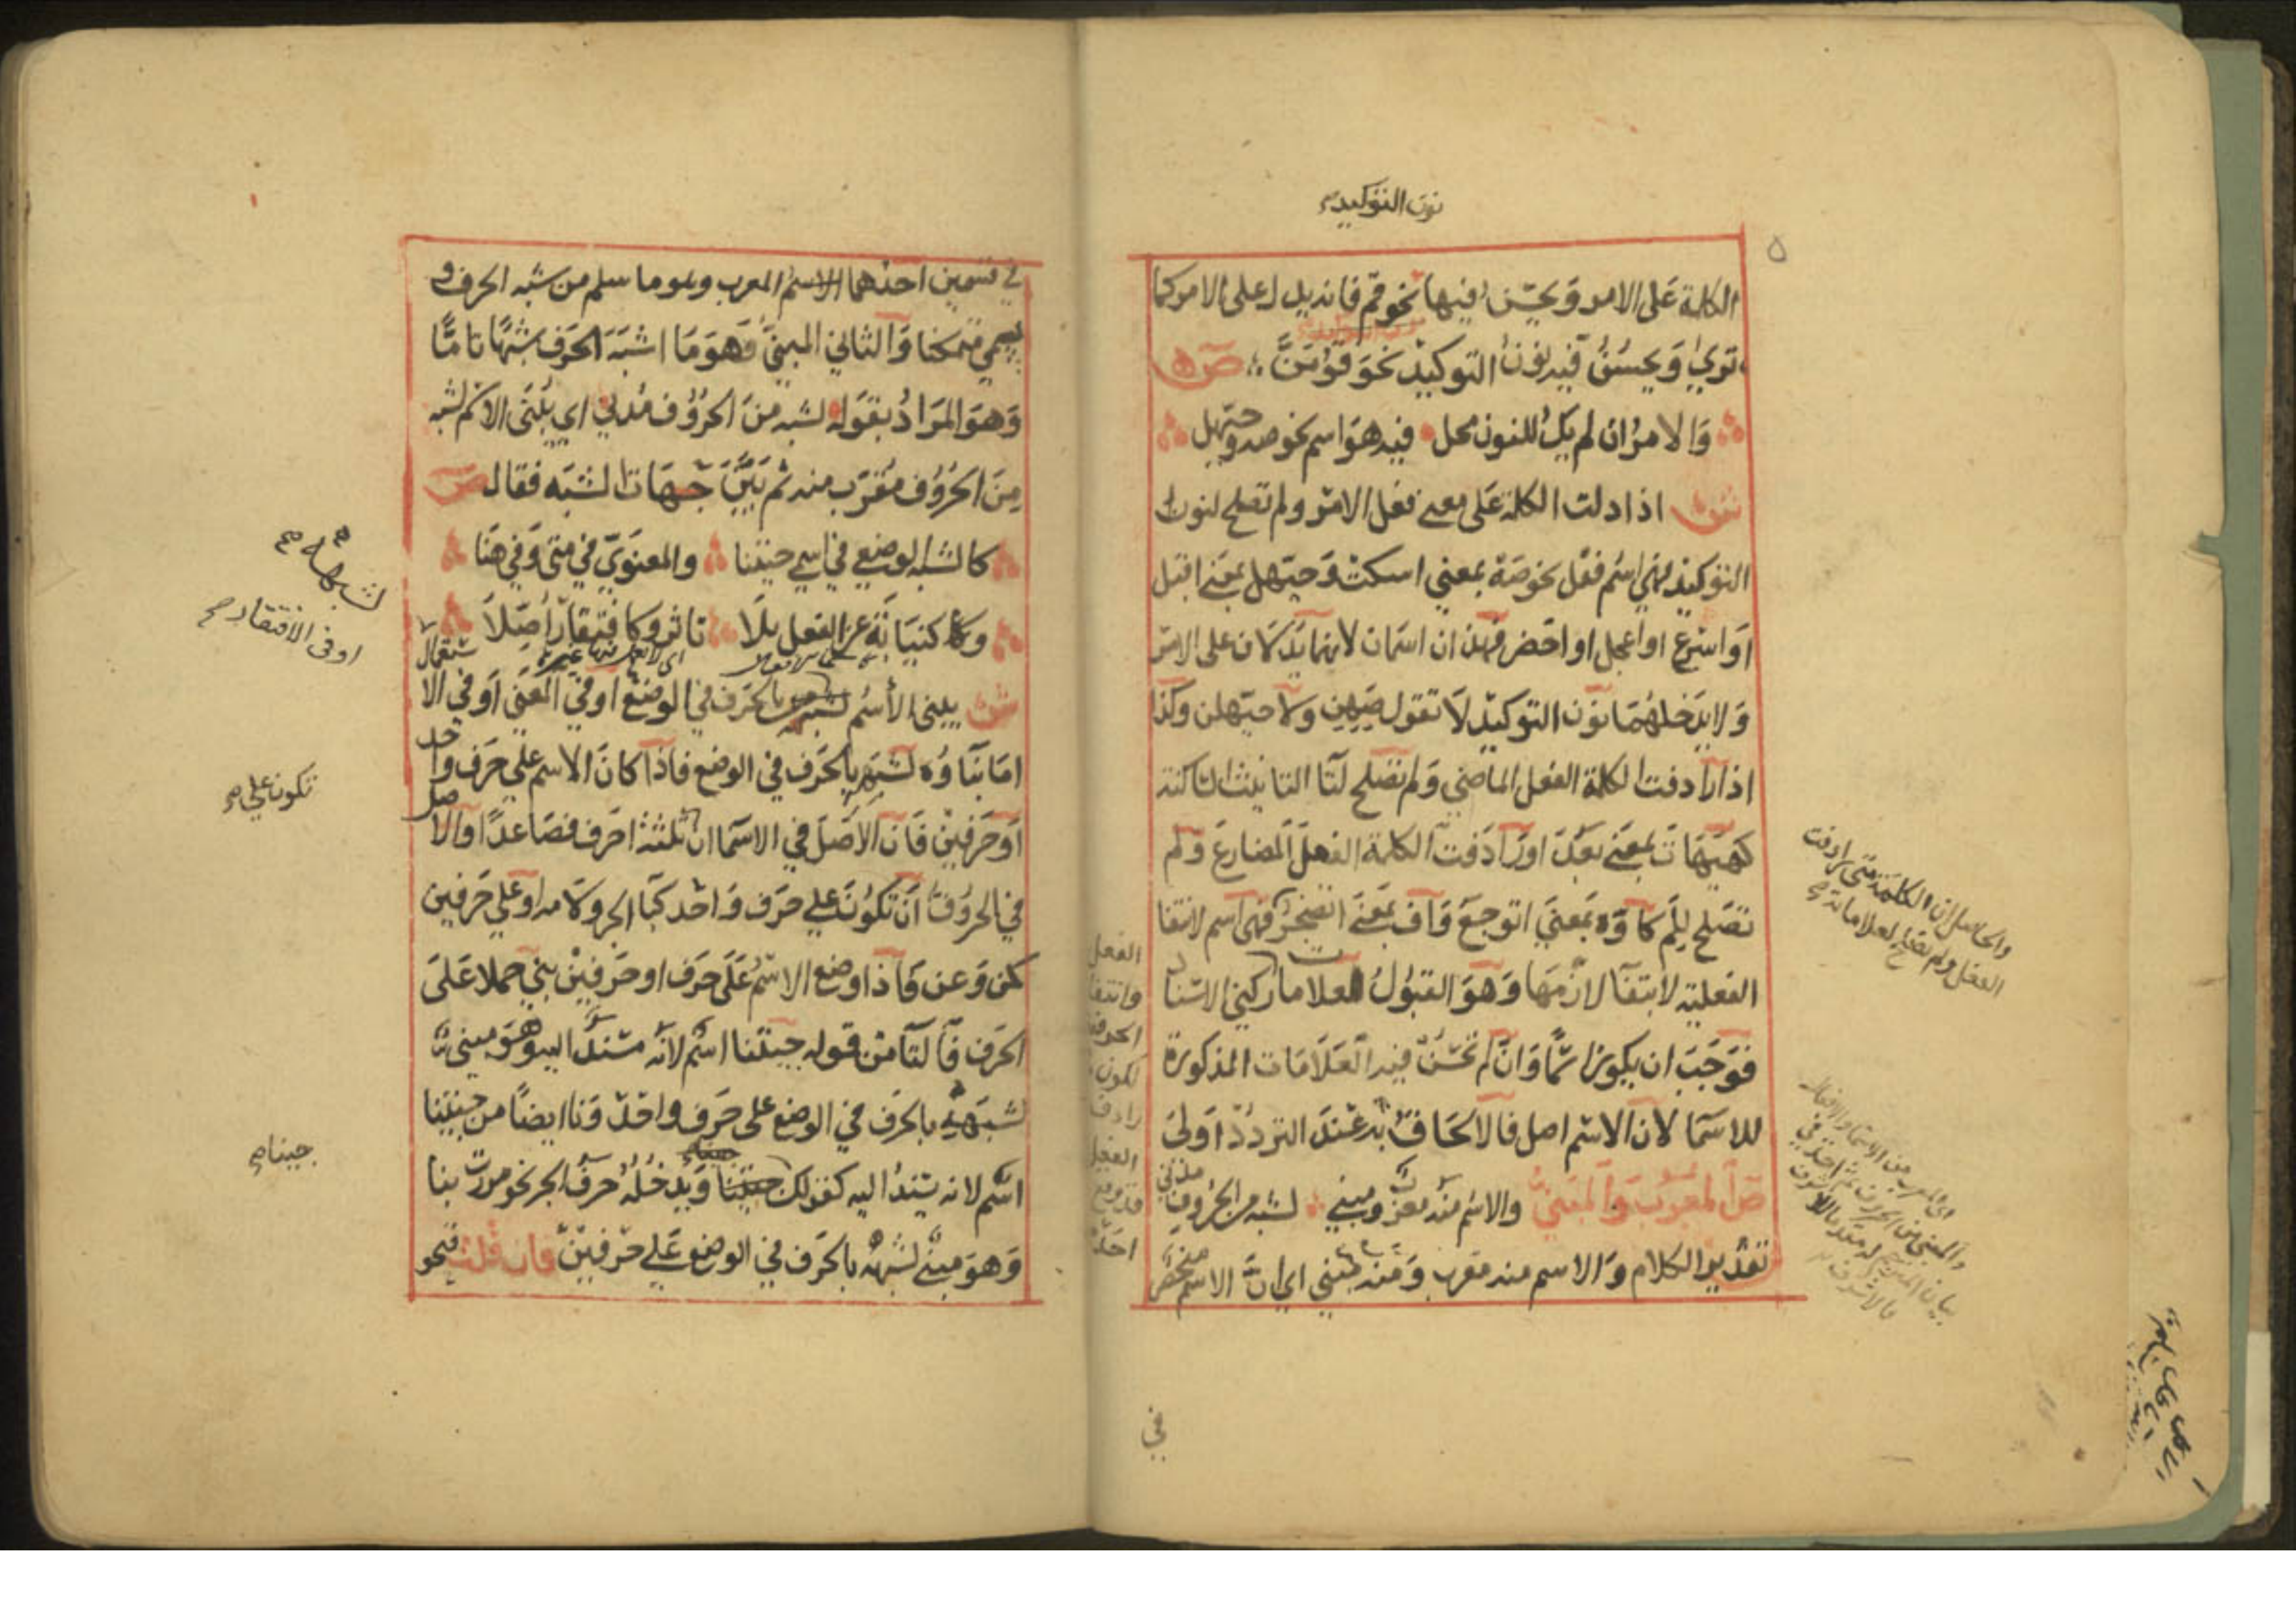 نون التوكيد
الكلمة على الامر ويحسن فيها نحو قم فانه يدل على الامر كما
ترى ويحسن فيه نون التوكيد نحو قومن ص
والامر ان لم يك للنون محل فيه هو اسم نحو صه وحيهل
ش اذا دلت الكلمة على معنى فعل الامر ولم تصلح لنون
التوكيد فهي اسم فعل نحو صه بمعنى اسكت وحيهل بمعنى اقبل
او اسرع او اعجل او احضر فهذان اسمان لانهما يدلان على الامر
ولا يدخلهما نون التوكيد لا تقول صهن ولا حيهلن وكذا
اذا رادفت الكلمة الفعل الماضي ولم تصلح لتا التانيث الساكنة
كهيهات بمعنى بعد او رادفت الكلمة الفعل المضارع ولم
تصلح للم كاوه بمعنى اتوجع واف بمعنى اتضجر فهي اسم لانتفا
الفعلية لانتفا لازمها وهو القبول لعلامات ركني الاسنا
فوجب ان يكون اسما وان لم تحسن فيه العلامات المذكورة
للاسما لان الاسم اصل فالالحاق به عند التردد اولى
ص المعرب والمبني والاسم منه معرب ومبني لشبه من الحروف مدني
تقدير الكلام والاسم منه معرب ومنه مبني اي ان الاسم منحصر
والحاصل ان الكلمة متى رادفت
الفعل ولم تصلح لعلاماته
في
في قسمين احدهما الاسم المعرب وهو ما سلم من شبه الحرف و
يسمى متمكنا والثاني المبني وهو ما اشبه الحرف شبها تاما
وهو المراد بقوله لشبه من الحروف مدني اي يبنى الاسم لشبه
من الحروف مقرب منه ثم بين جهات الشبه فقال ص
كالشبه الوضعي في اسمي جيتنا والمعنوي في متى وفي هنا
وكنيابة عن الفعل بلا تاثر وكافتقار اصلا
ش يبنى الاسم بالحرف في الوضع او في المعنى او في الا
ستعمال
اما بناوه لشبهه بالحرف في الوضع فاذا كان الاسم على حرف وا
حد
او حرفين فان الاصل في الاسما ان ثلثة احرف فصاعدا والا
صل
في الحروف ان تكون على حرف واحد كبا الجر ولامه او على حرفين
كمن وعن فاذا وضع الاسم على حرف او حرفين بني حملا على
الحرف فالتا من قوله جيتنا اسم لانه مسند اليه وهو مبني
لشبهه بالحرف في الوضع على حرف واحد ونا ايضا من جيتنا
اسم لانه يسند اليه كقولك ويدخله حرف الجر نحو مررت بنا
وهو مبني لشبهه بالحرف في الوضع على حرفين فان قلت فنحو
لشبهه
او في الافتقار
تكون على
جينا